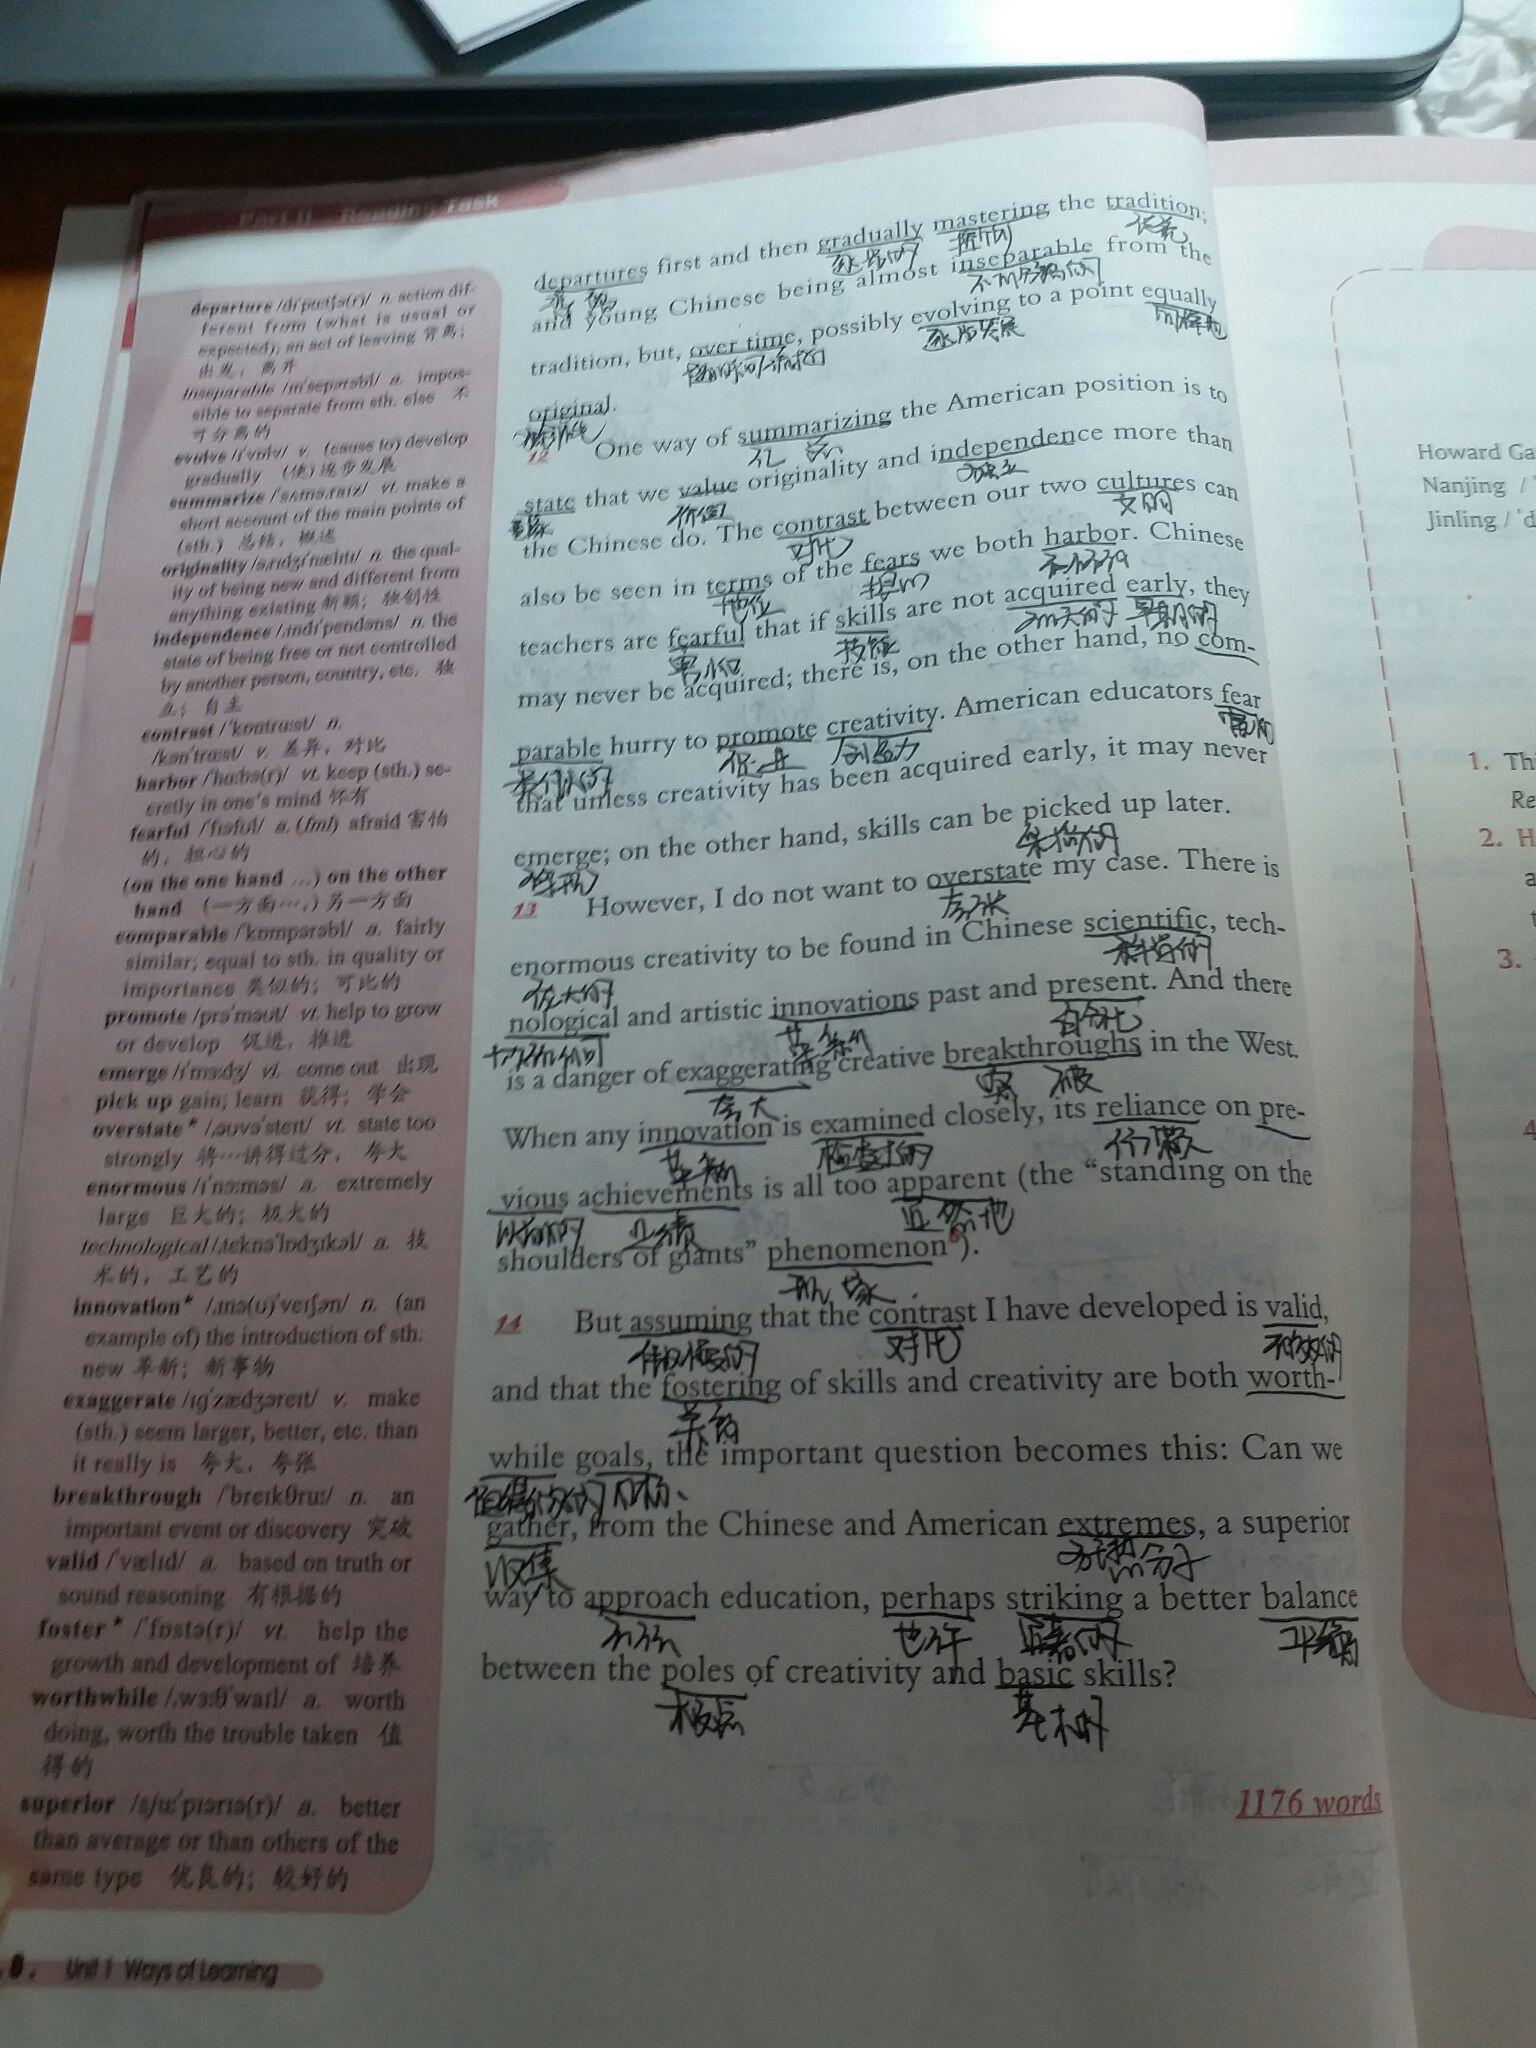 Part II Reading Task
departure /dɪˈpɑːtʃə(r)/ n. action dif-
ferent from (what is usual or
expected); an act of leaving 背离;
出发, 离开
inseparable /ɪnˈsepərəbl/ a. impos-
sible to separate from sth. else 不
可分离的
evolve /ɪˈvɒlv/ v. (cause to) develop
gradually (使)逐步发展
summarize /ˈsʌməˌraɪz/ vt. make a
short account of the main points of
(sth.) 总结, 概述
originality /əˌrɪdʒɪˈnælɪtɪ/ n. the qual-
ity of being new and different from
anything existing 新颖; 独创性
independence /ˌɪndɪˈpendəns/ n. the
state of being free or not controlled
by another person, country, etc. 独
立; 自主
contrast /ˈkɒntrɑːst/ n.
/kənˈtrɑːst/ v. 差异, 对比
harbor /ˈhɑːbə(r)/ vt. keep (sth.) se-
cretly in one's mind 怀有
fearful /ˈfɪəfʊl/ a. (fml) afraid 害怕
的, 担心的
(on the one hand ...) on the other
hand (一方面…,) 另一方面
comparable /ˈkɒmpərəbl/ a. fairly
similar; equal to sth. in quality or
importance 类似的; 可比的
promote /prəˈməʊt/ vt. help to grow
or develop 促进, 推进
emerge /ɪˈmɜːdʒ/ vi. come out 出现
pick up gain; learn 获得; 学会
overstate* /ˌəʊvəˈsteɪt/ vt. state too
strongly 将…讲得过分, 夸大
enormous /ɪˈnɔːməs/ a. extremely
large 巨大的; 极大的
technological /ˌteknəˈlɒdʒɪkəl/ a. 技
术的, 工艺的
innovation* /ˌɪnə(ʊ)ˈveɪʃən/ n. (an
example of) the introduction of sth.
new 革新; 新事物
exaggerate /ɪɡˈzædʒəreɪt/ v. make
(sth.) seem larger, better, etc. than
it really is 夸大, 夸张
breakthrough /ˈbreɪkθruː/ n. an
important event or discovery 突破
valid /ˈvælɪd/ a. based on truth or
sound reasoning 有根据的
foster* /ˈfɒstə(r)/ vt. help the
growth and development of 培养
worthwhile /ˌwɜːθˈwaɪl/ a. worth
doing, worth the trouble taken 值
得的
superior /sjuːˈpɪərɪə(r)/ a. better
than average or than others of the
same type 优良的; 较好的
8. Unit 1 Ways of Learning
departures first and then gradually mastering the tradition;
传统
and young Chinese being almost inseparable from the
tradition, but, over time, possibly evolving to a point equally
逐步发展
original.
12 One way of summarizing the American position is to
state that we value originality and independence more than
价值
独立
the Chinese do. The contrast between our two cultures can
对比
文明
also be seen in terms of the fears we both harbor. Chinese
地位
teachers are fearful that if skills are not acquired early, they
害怕
技能
早期的
may never be acquired; there is, on the other hand, no com-
parable hurry to promote creativity. American educators fear
促进
创造力
that unless creativity has been acquired early, it may never
emerge; on the other hand, skills can be picked up later.
13 However, I do not want to overstate my case. There is
夸张
enormous creativity to be found in Chinese scientific, tech-
科学的
nological and artistic innovations past and present. And there
is a danger of exaggerating creative breakthroughs in the West.
夸大
突破
When any innovation is examined closely, its reliance on pre-
革新
依赖
vious achievements is all too apparent (the "standing on the
以前的
业绩
shoulders of giants" phenomenon6).
现象
14 But assuming that the contrast I have developed is valid,
对比
有效的
and that the fostering of skills and creativity are both worth-
养育
while goals, the important question becomes this: Can we
目标、
gather, from the Chinese and American extremes, a superior
收集
way to approach education, perhaps striking a better balance
也许
显著的
平衡
between the poles of creativity and basic skills?
极点
基本的
1176 words
Howard Ga
Nanjing /
Jinling / ˈd
1. Th
Re
2. H
a
3.
4